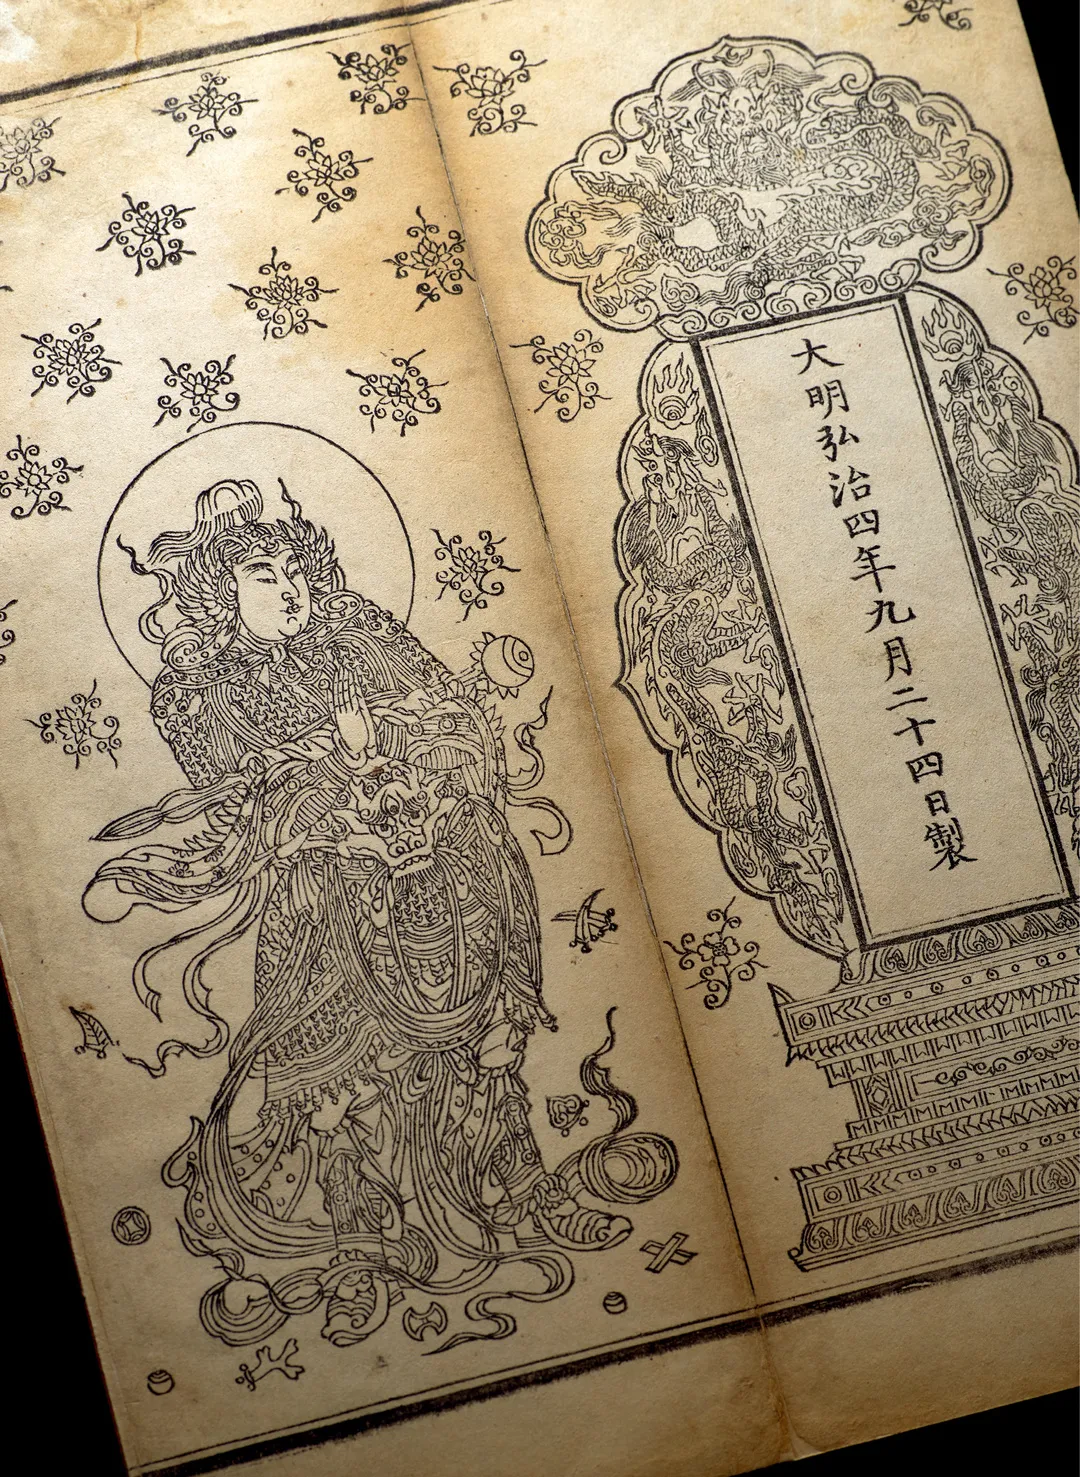 大明弘治四年九月二十四日製